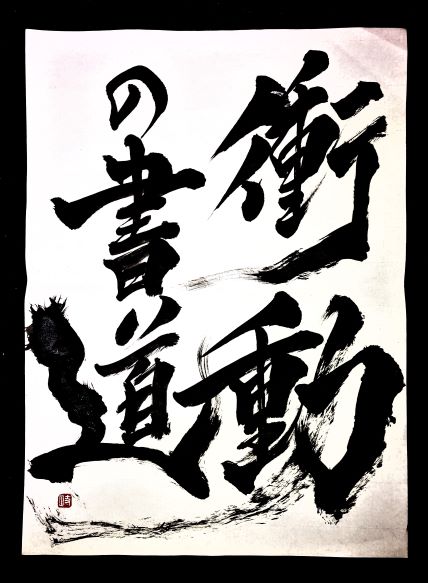 衝動
の書道